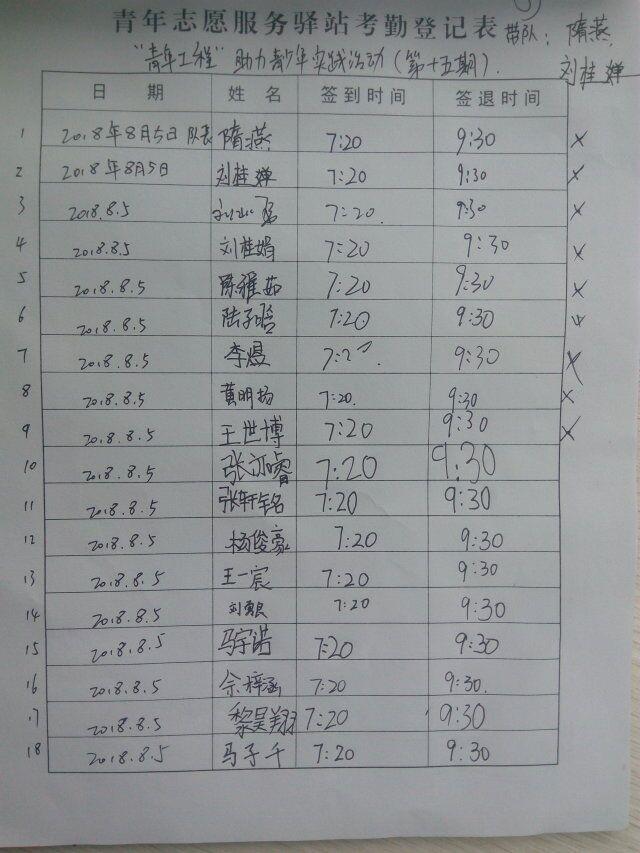 青年志愿服务驿站考勤登记表 带队：隋燕，
"青年工程"助力青少年实践活动（第十五期）. 刘桂婵
日 期 姓 名 签到时间 签退时间
1 2018年8月5日 队长 隋燕 7:20 9:30 ×
2 2018年8月5日 刘桂婵 7:20 9:30 ×
3 2018.8.5 7:20. 9:30 ×
4 2018.8.5 刘桂娟 7:20 9:30 ×
5 2018.8.5 陈雅茹 7:20 9:30 ×
6 2018.8.5 陆子晗 7:20 9:30
7 2018.8.5 李煜 9:30 ×
8 2018.8.5 黄明扬 7:20. 9:30 ×
9 2018.8.5 王世博 7:20 9:30 ×
10 2018.8.5 张 睿 7:20 9:30
11 2018.8.5 张轩铭 7:20 9:30
12 2018.8.5 杨俊豪 7:20 9:30
13 2018.8.5 王一宸 7:20 9:30
14 2018.8.5 7:20 9:30
15 2018.8.5 马宇诺 7:20 9:30
16 2018.8.5 佘梓涵 7:20 9:30.
17 2018.8.5 黎昊翔 7:20 9:30
18 2018.8.5 马子千 7:20 9:30